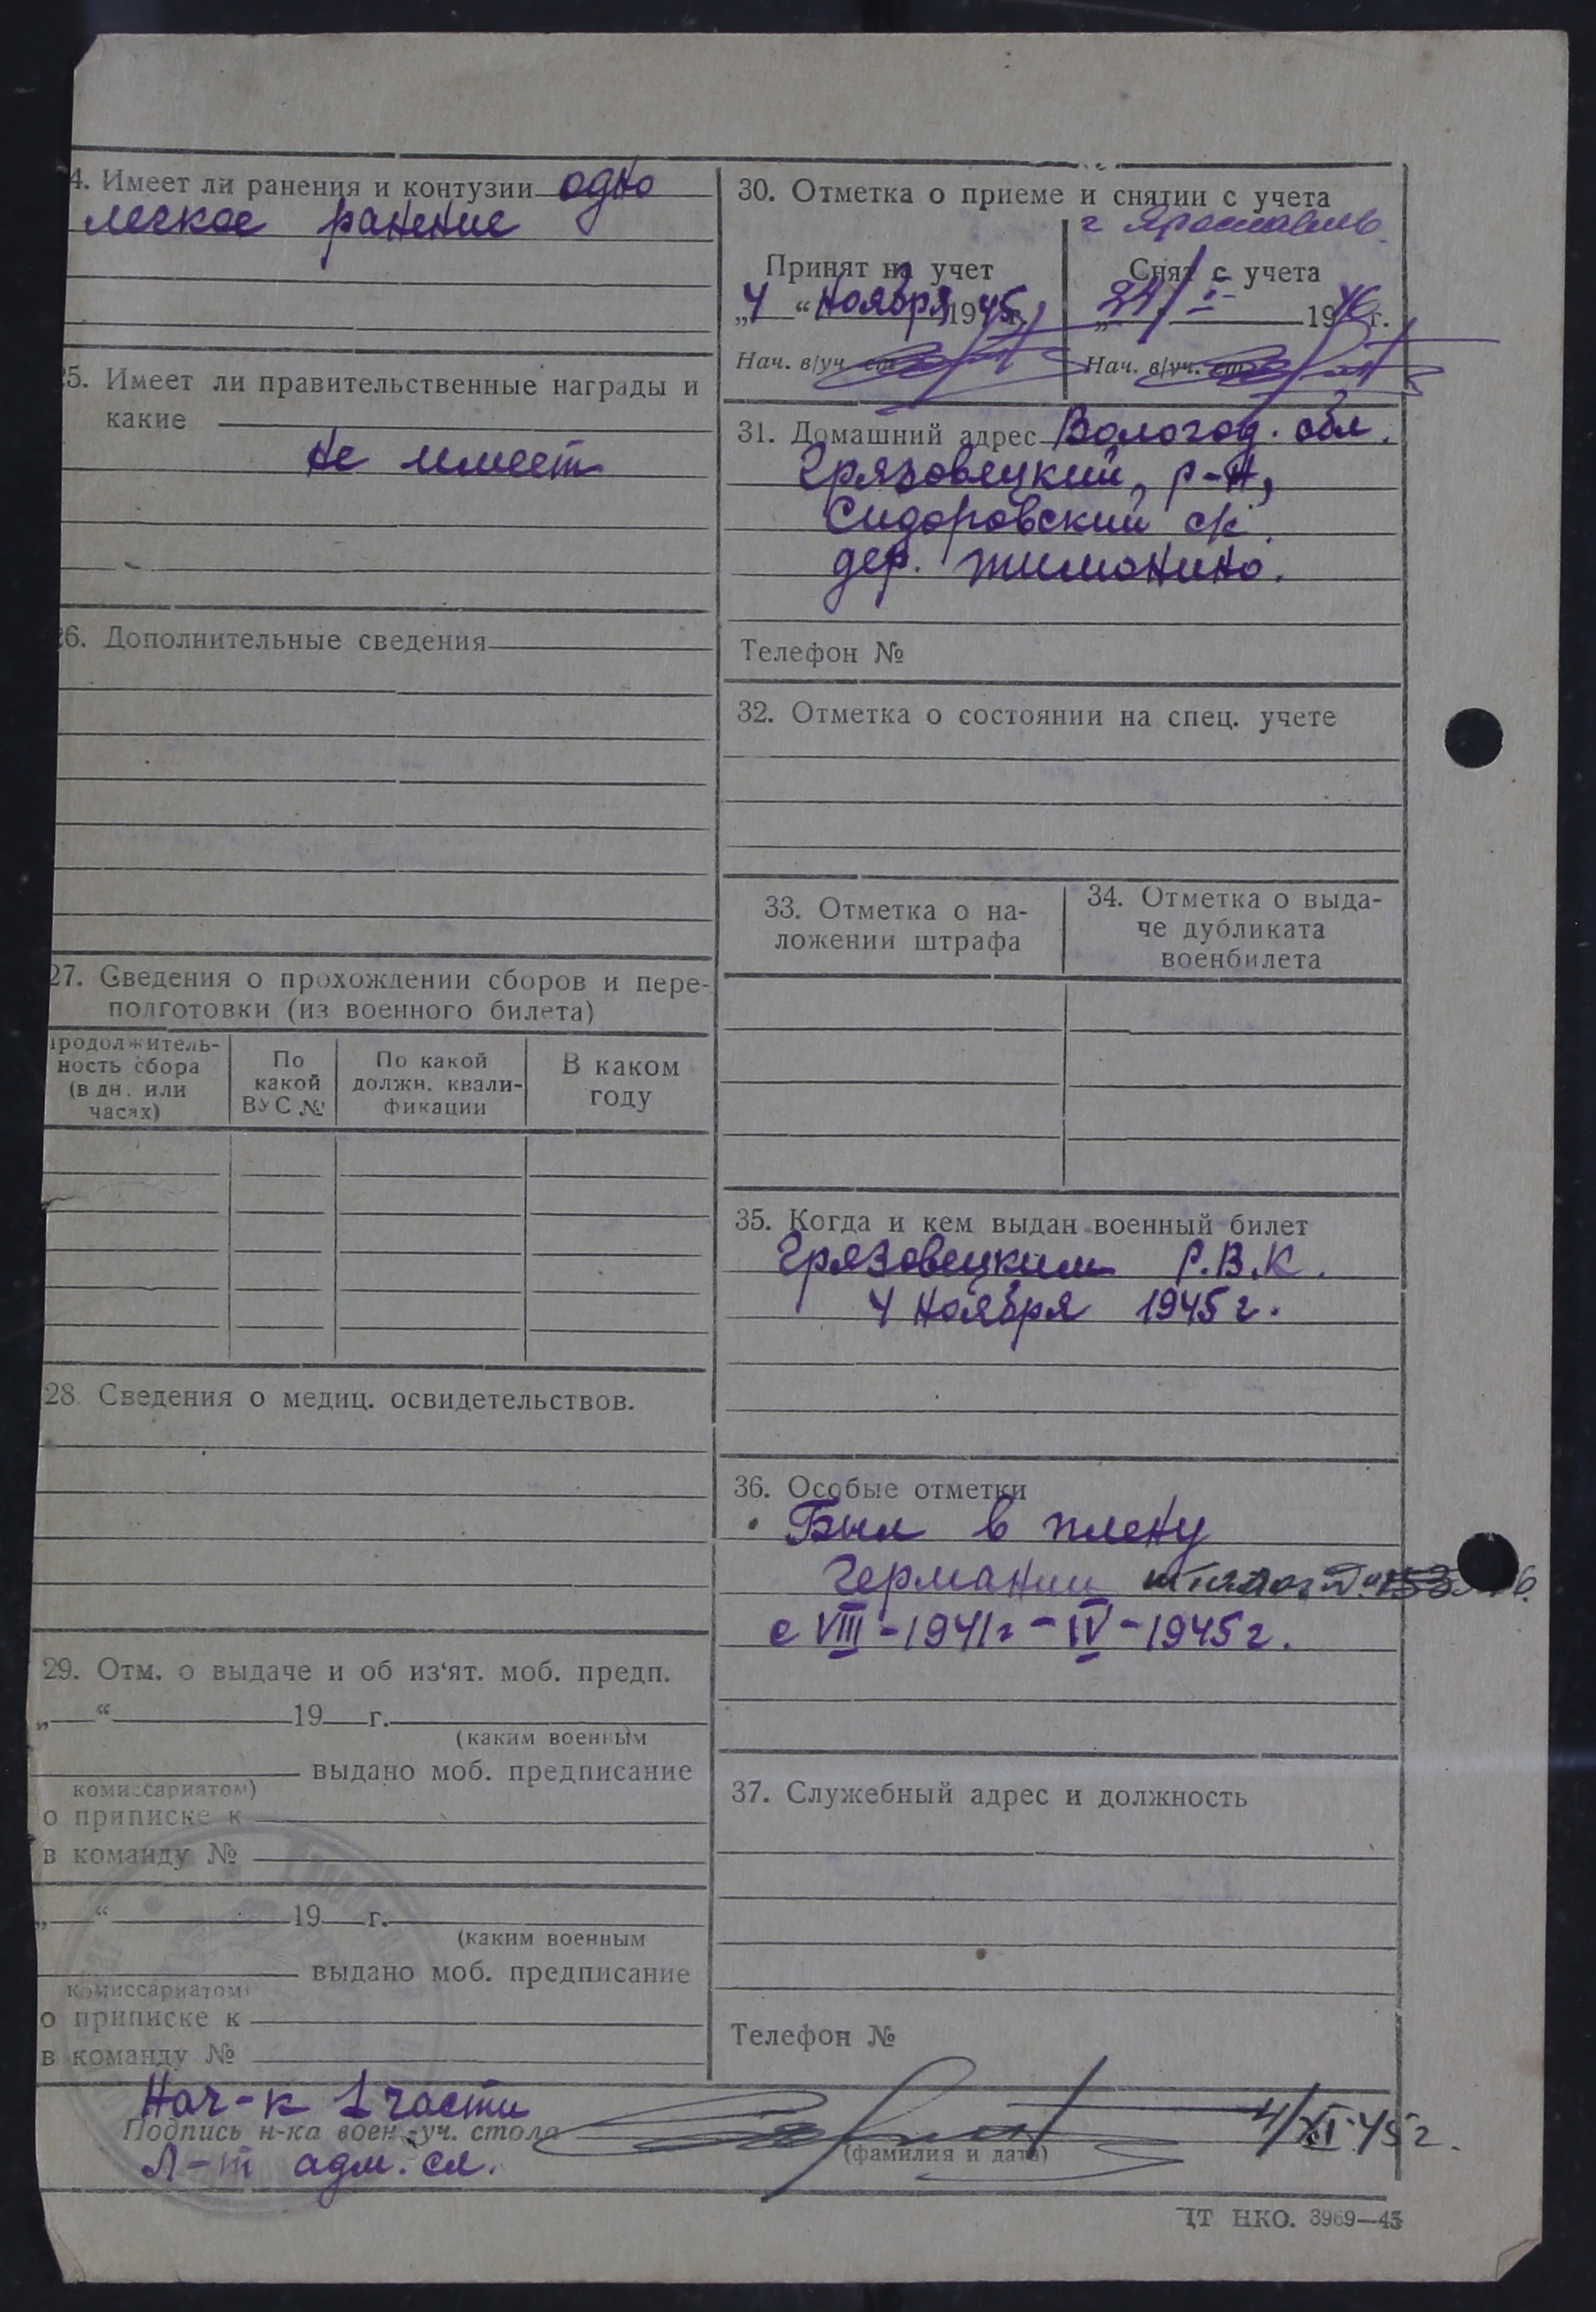 4. Имеет ли ранения и контузии одно
легкое ранение
5. Имеет ли правительственные награды и
какие
не имеет
6. Дополнительные сведения
27. Сведения о прохождении сборов и пере-
подготовки (из военного билета)
продолжитель-
ность сбора
(в дн. или
часах)
По
какой
ВУС №
По какой
должн. квали-
фикации
В каком
году
28. Сведения о медиц. освидетельствов.
29. Отм. о выдаче и об из‘ят. моб. предп.
„ “ 19 г.
(каким военным
выдано моб. предписание
комиссариатом)
о приписке к
в команду №
„ “ 19 г.
(каким военным
выдано моб. предписание
комиссариатом)
о приписке к
в команду №
30. Отметка о приеме и снятии с учета
г Ярославль
Принят на учет
„4“ ноября 1945 г.
Нач. в/уч.
Снят с учета
24/I 1946 г.
Нач. в/уч.
31. Домашний адрес Вологод. обл.
Грязовецкий р-н,
Сидоровский с/с
дер. Тимонино.
Телефон №
32. Отметка о состоянии на спец. учете
33. Отметка о на-
ложении штрафа
34. Отметка о выда-
че дубликата
военбилета
35. Когда и кем выдан военный билет
Грязовецким Р.В.К.
4 ноября 1945 г.
36. Особые отметки
Был в плену
Германии шталаг
с VIII-1941г-IV-1945г.
37. Служебный адрес и должность
Телефон №
Нач-к 1 части
Подпись н-ка воен.-уч. стола
(фамилия и дата)
4/XI 45 г.
Л-т адм. сл.
ЦТ НКО. 3969—45